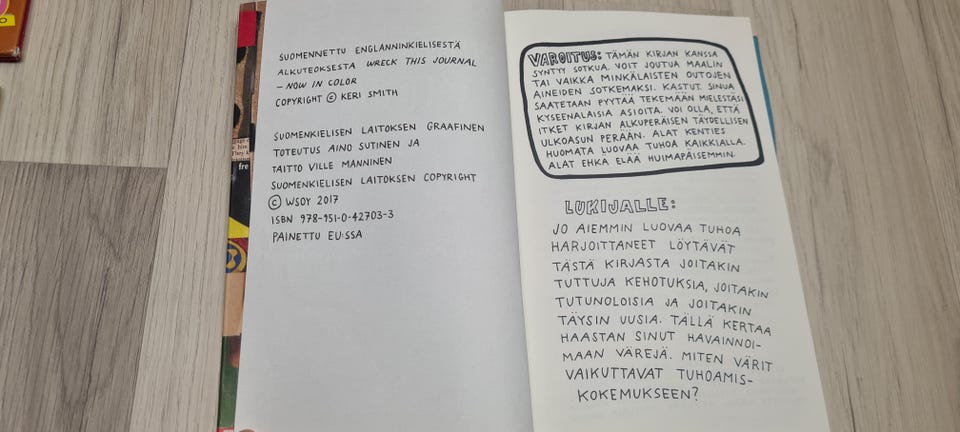 SUOMENNETTU ENGLANNINKIELISESTÄ
ALKUTEOKSESTA WRECK THIS JOURNAL
– NOW IN COLOR
COPYRIGHT © KERI SMITH
SUOMENKIELISEN LAITOKSEN GRAAFINEN
TOTEUTUS AINO SUTINEN JA
TAITTO VILLE MANNINEN
SUOMENKIELISEN LAITOKSEN COPYRIGHT
© WSOY 2017
ISBN 978-951-0-42703-3
PAINETTU EU:SSA
VAROITUS: TÄMÄN KIRJAN KANSSA
SYNTYY SOTKUA. VOIT JOUTUA MAALIN
TAI VAIKKA MINKÄLAISTEN OUTOJEN
AINEIDEN SOTKEMAKSI. KASTUT. SINUA
SAATETAAN PYYTÄÄ TEKEMÄÄN MIELESTÄSI
KYSEENALAISIA ASIOITA. VOI OLLA, ETTÄ
ITKET KIRJAN ALKUPERÄISEN TÄYDELLISEN
ULKOASUN PERÄÄN. ALAT KENTIES
HUOMATA LUOVAA TUHOA KAIKKIALLA.
ALAT EHKÄ ELÄÄ HUIMAPÄISEMMIN.
LUKIJALLE:
JO AIEMMIN LUOVAA TUHOA
HARJOITTANEET LÖYTÄVÄT
TÄSTÄ KIRJASTA JOITAKIN
TUTTUJA KEHOTUKSIA, JOITAKIN
TUTUNOLOISIA JA JOITAKIN
TÄYSIN UUSIA. TÄLLÄ KERTAA
HAASTAN SINUT HAVAINNOI-
MAAN VÄREJÄ. MITEN VÄRIT
VAIKUTTAVAT TUHOAMIS-
KOKEMUKSEEN?